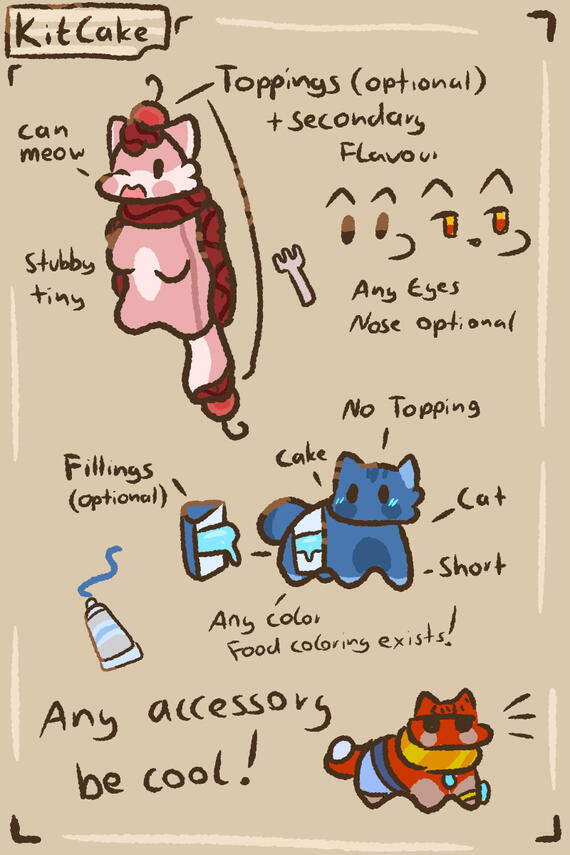 KitCake
Toppings (optional)
+ secondary
Flavour
can
meow
Stubby
tiny
Any Eyes
Nose optional
No Topping
Cake
Fillings
(optional)
Cat
Short
Any color
Food coloring exists!
Any accessory
be cool!